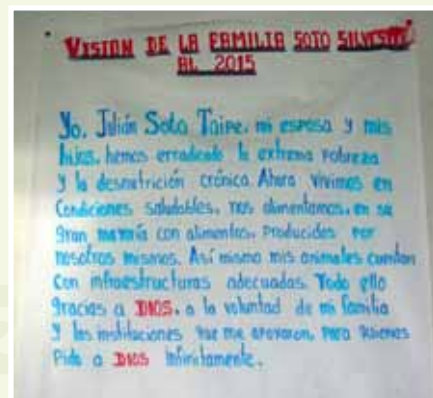 VISION DE LA FAMILIA SOTO SILVESTRE
AL 2015
Yo, Julián Soto Taipe, mi esposa y mis
hijos, hemos erradicado la extrema pobreza
y la desnutrición crónica. Ahora vivimos en
Condiciones saludables, nos alimentamos, en su
gran mayoría con alimentos, Producidos por
nosotros mismos. Así mismo mis animales cuentan
Con infraestructuras adecuadas. Todo ello
gracias a DIOS, a la voluntad de mi familia
y las instituciones que me apoyaron, para quienes
Pido a DIOS infinitamente.